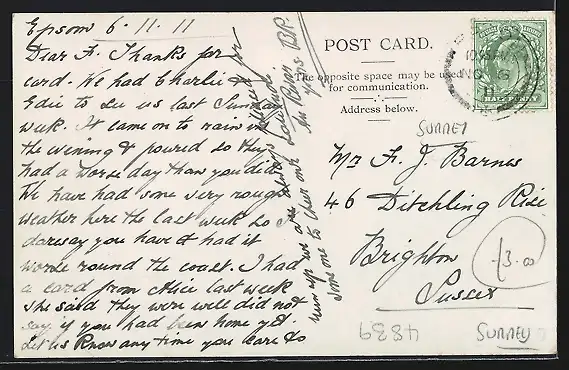 Epsom 6.11.11
Dear F. Thanks for
card. We had Charlie &
Edie to see us last Sunday
week. It came on to rain in
the evening & poured so they
had a worse day than you did
We have had some very rough
weather here the last week so I
daresay you have & had it
worse round the coast. I had
a card from Alice last week
she said they were well did not
say if you had been home yet.
Let us know any time you care to
run up we are always pleased for
someone to cheer our
Yours B.P.
POST CARD.
The opposite space may be used
for communication.
Address below.
HALFPENNY
SURREY
Mr F. J. Barnes
46 Ditchling Rise
Brighton
Sussex
£3.00
4839
SURREY